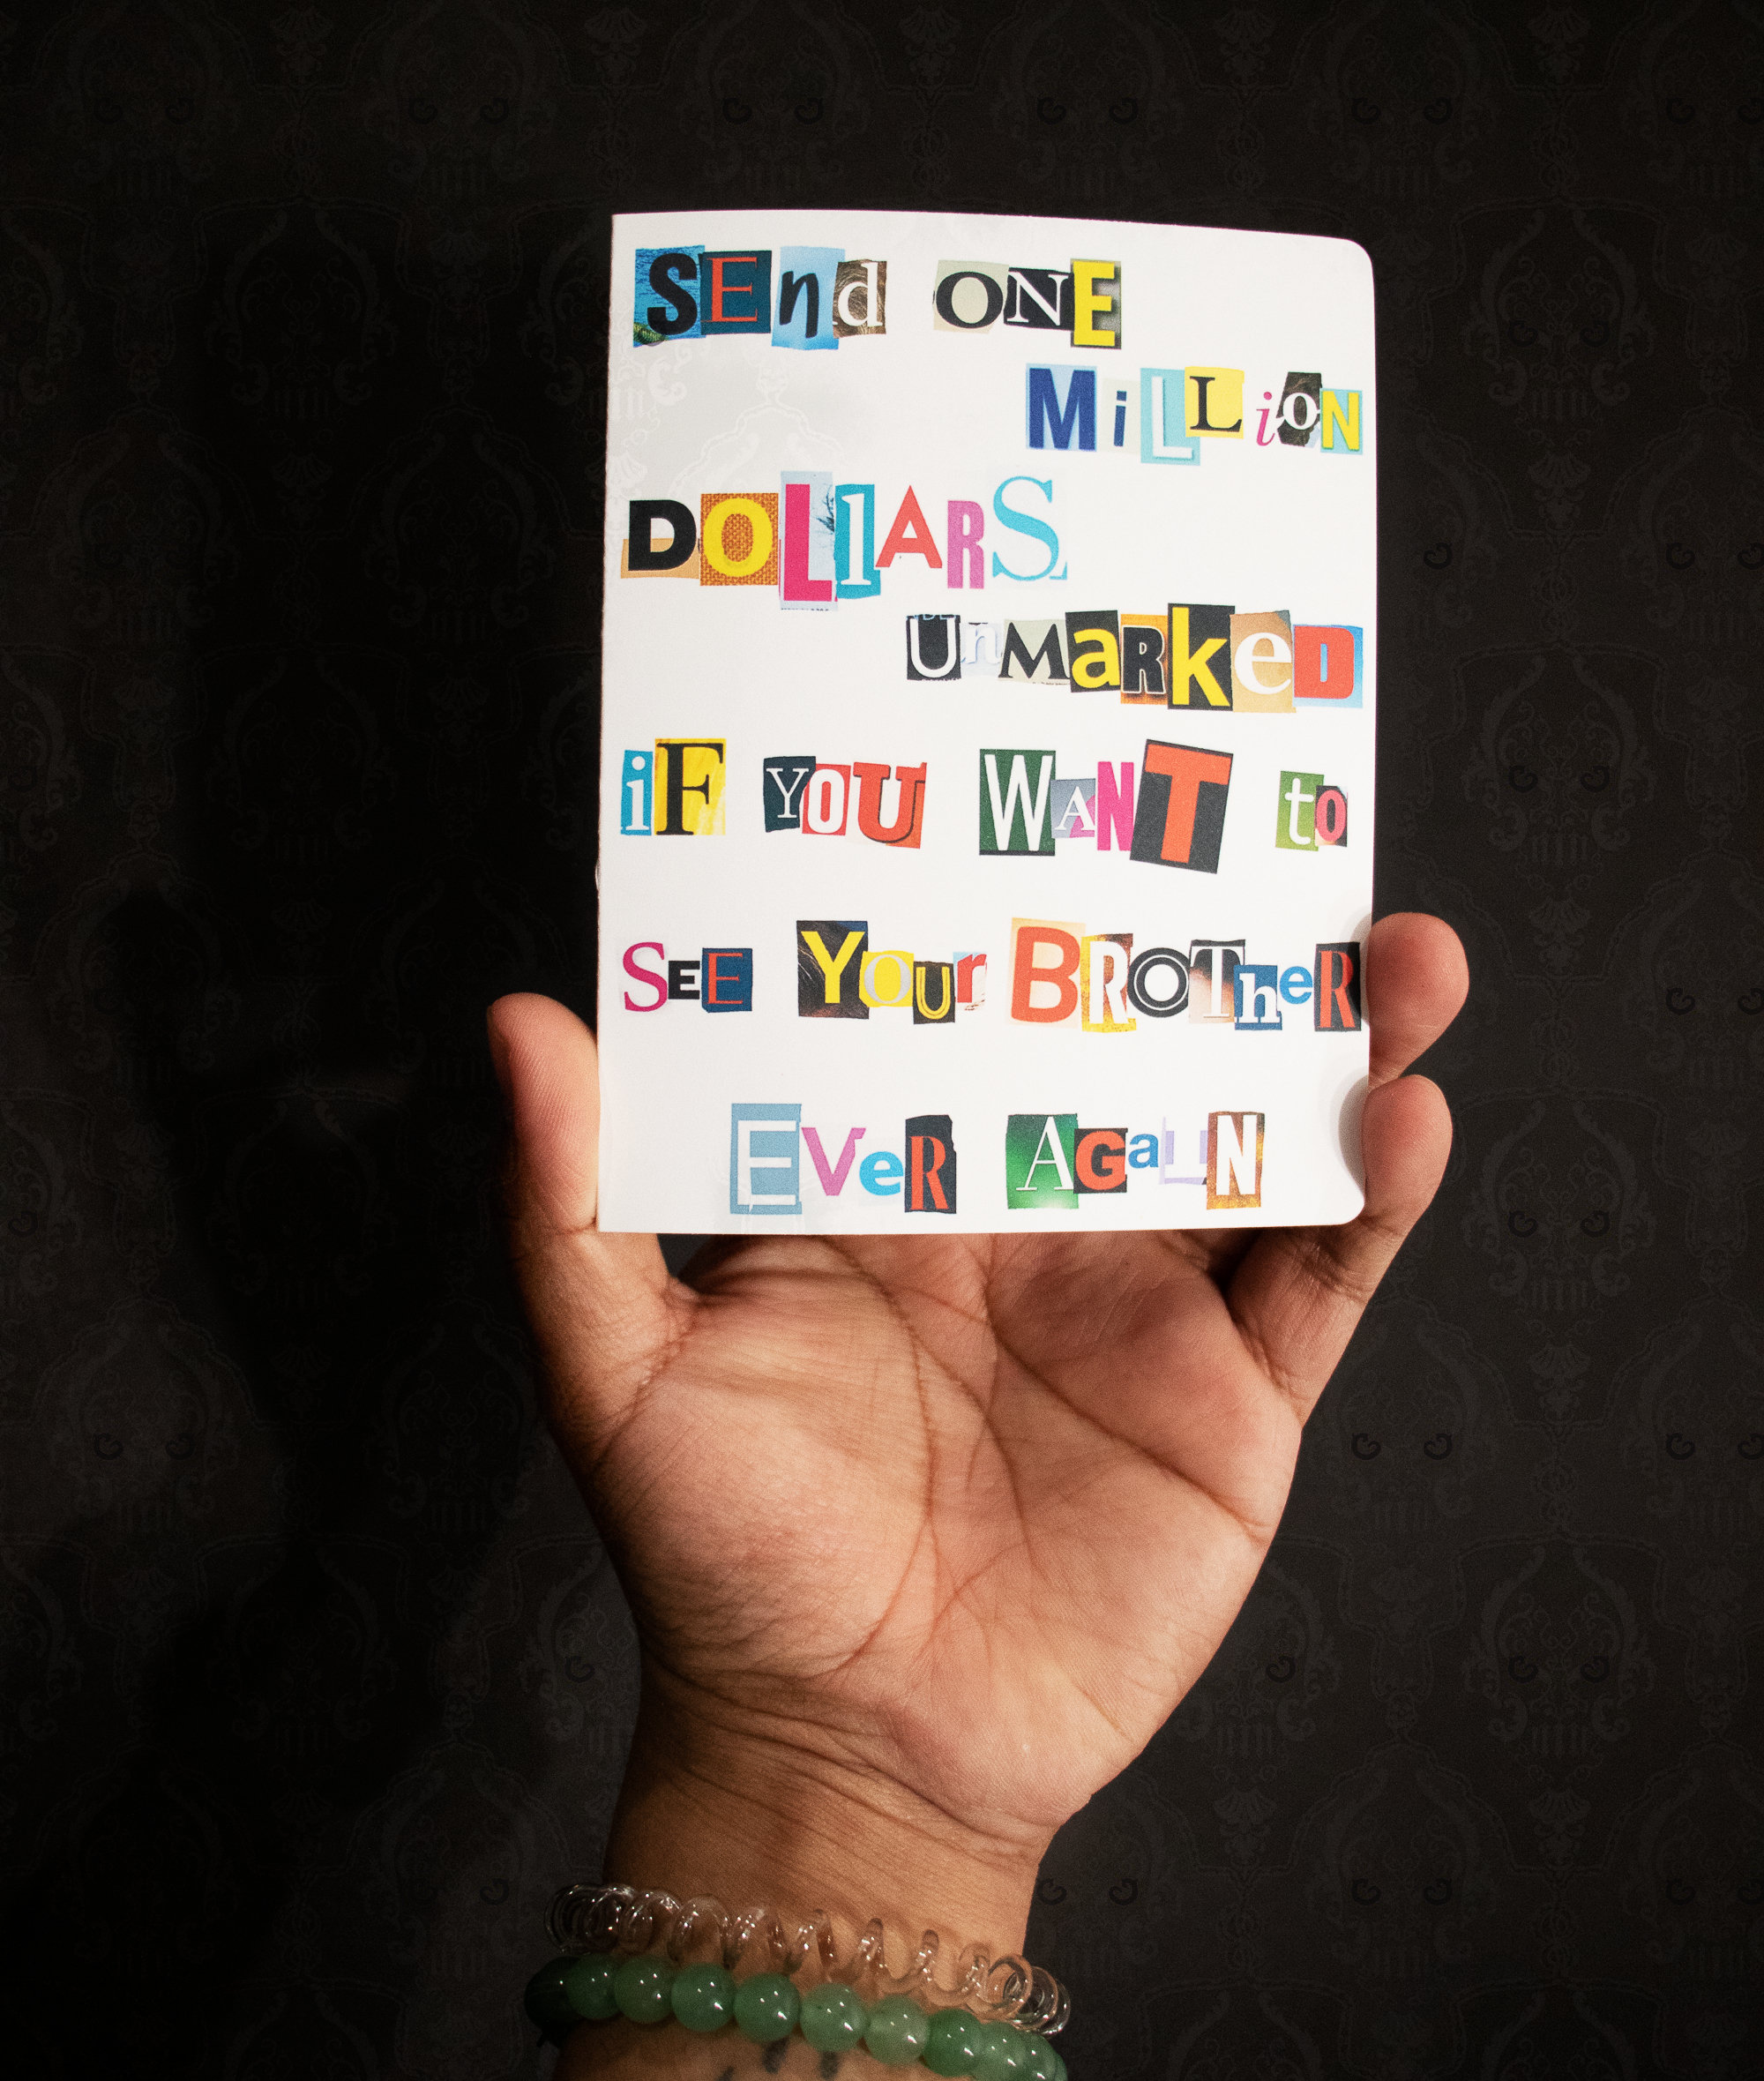 SEnd ONE
MiLLioN
DOLlARS
UnMaRkeD
iF YOU WANT to
SEE YOur BROTheR
EVeR AGaIN